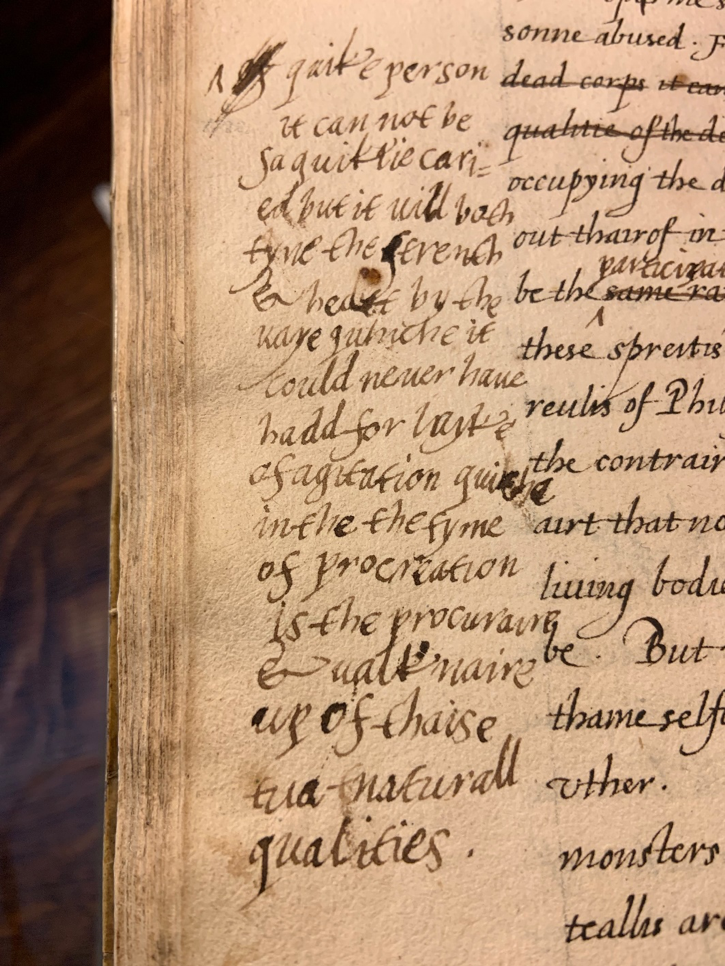 quike person
it can not be
sa quiklie cari=
ed but it will both
tyne the strenth
& heate by the
uaye quhiche it
could never have
hadd for lakke
of agitation quiche
in the the tyme
of procreation
is the procurare
& ualkinnaire
up of thaise
tua naturall
qualities.
sonne abused.
dead corps it can
qualitie of the de
occupying the d
out thairof in
participat
be the same ra
these spreitis
reulis of Phi
the contrair
airt that no
living bodie
be. But
thame selfe
vther.
monsters
teallis are